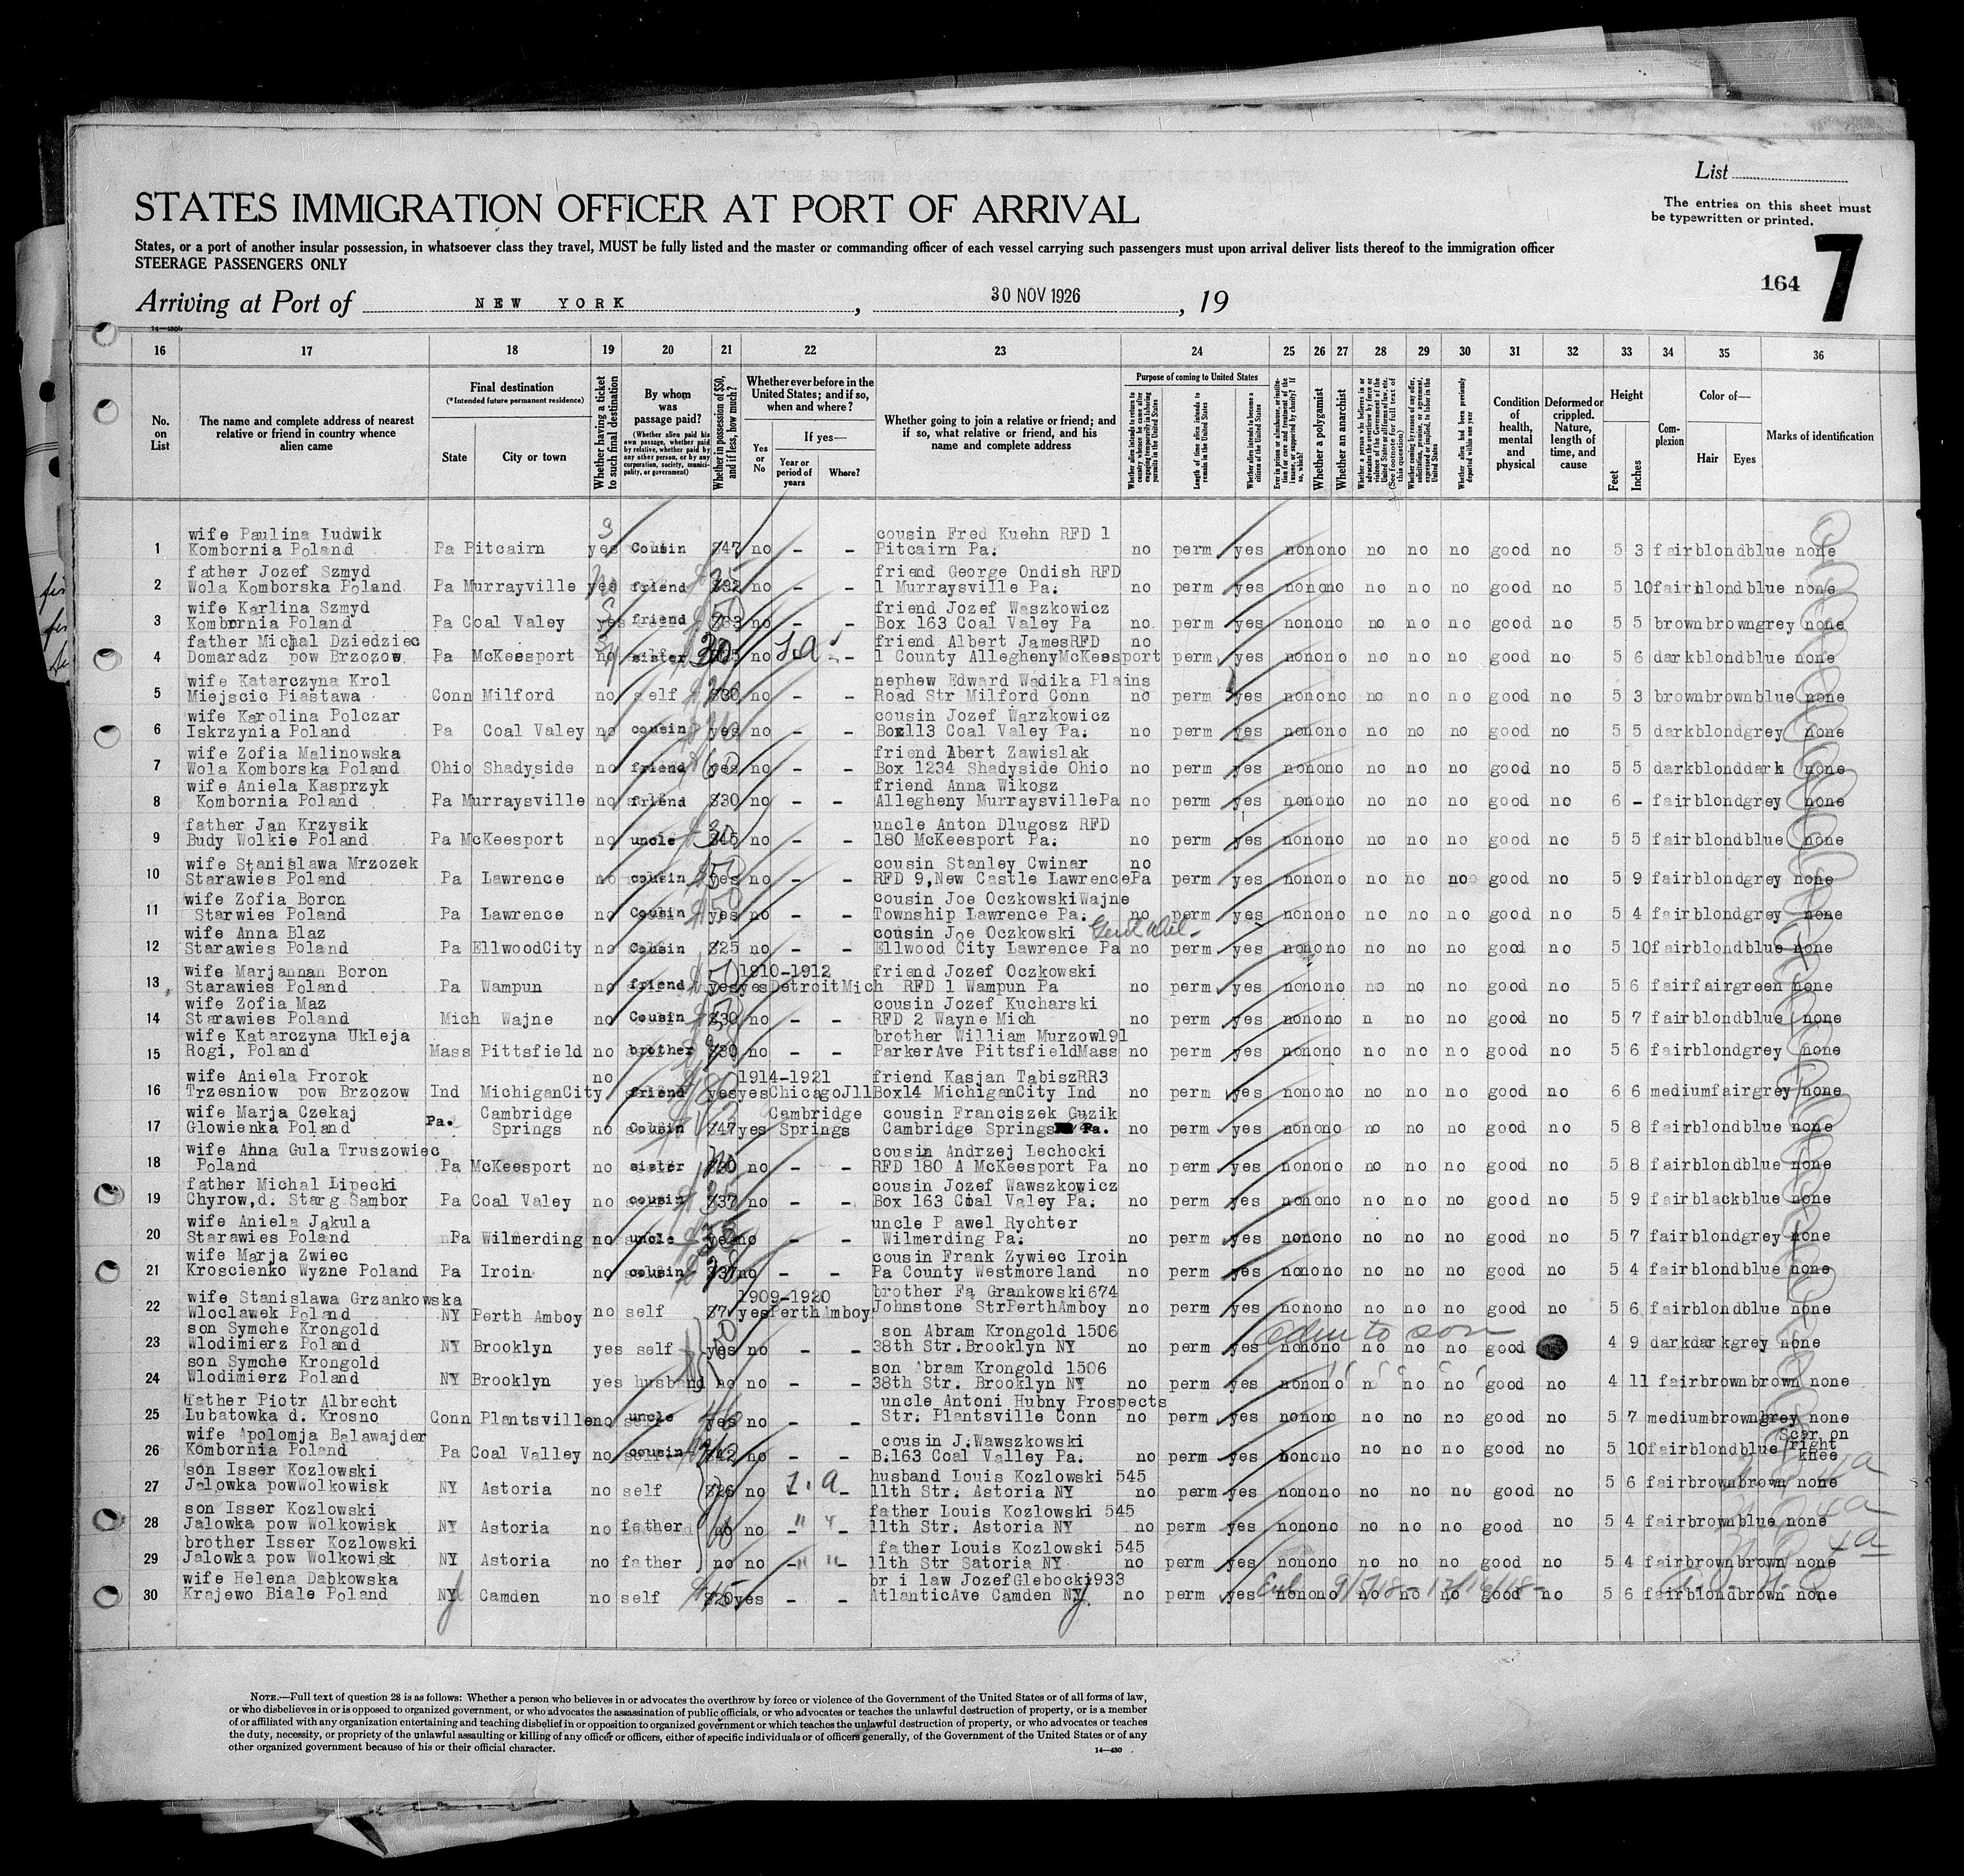 List
The entries on this sheet must
be typewritten or printed.
STATES IMMIGRATION OFFICER AT PORT OF ARRIVAL
States, or a port of another insular possession, in whatsoever class they travel, MUST be fully listed and the master or commanding officer of each vessel carrying such passengers must upon arrival deliver lists thereof to the immigration officer
STEERAGE PASSENGERS ONLY
164 7
Arriving at Port of NEW YORK , 30 NOV 1926 , 19
14—430b
16 17 18 19 20 21 22 23 24 25 26 27 28 29 30 31 32 33 34 35 36
No. on List
The name and complete address of nearest relative or friend in country whence alien came
Final destination
(*Intended future permanent residence)
State
City or town
Whether having a ticket to such final destination
By whom was passage paid?
(Whether alien paid his own passage, whether paid by relative, whether paid by any other person, or by any corporation, society, municipality, or government)
Whether in possession of $50, and if less, how much?
Whether ever before in the United States; and if so, when and where?
Yes or No
If yes—
Year or period of years
Where?
Whether going to join a relative or friend; and if so, what relative or friend, and his name and complete address
Purpose of coming to United States
Length of time alien intends to remain in the United States
Whether alien intends to become a citizen of the United States
Whether a polygamist
Whether an anarchist
Condition of health, mental and physical
Deformed or crippled. Nature, length of time, and cause
Height
Feet
Inches
Complexion
Color of—
Hair
Eyes
Marks of identification
wife Paulina Ludwik cousin Fred Kuehn RFD 1
1 Kombornia Poland Pa Pitcairn yes Cousin $47 no - - Pitcairn Pa. no perm yes no no no no no no good no 5 3 fair blond blue none
father Jozef Szmyd friend George Ondish RFD
2 Wola Komborska Poland Pa Murrayville yes friend $32 no - - 1 Murraysville Pa. no perm yes no no no no no no good no 5 10 fair blond blue none
wife Karlina Szmyd friend Jozef Waszkowicz
3 Kombrnia Poland Pa Coal Valey yes friend no - - Box 163 Coal Valey Pa no perm yes no no no no no no good no 5 5 brown brown grey none
father Michal Dziedziec friend Albert James RFD no
4 Domaradz pow Brzozow Pa McKeesport no sister 30 no - 1 County Allegheny McKeesport perm yes no no no no no no good no 5 6 dark blond blue none
wife Katarczyna Krol nephew Edward Wadika Plains
5 Miejscic Piastawa Conn Milford no self $30 no - - Road Str Milford Conn no perm yes no no no no no no good no 5 3 brown brown blue none
wife Karolina Polczar cousin Jozef Warzkowicz
6 Iskrzynia Poland Pa Coal Valey no cousin yes no - - Box113 Coal Valey Pa. no perm yes no no no no no no good no 5 5 dark blond grey none
wife Zofia Malinowska friend Abert Zawislak
7 Wola Komborska Poland Ohio Shadyside no friend yes no - - Box 1234 Shadyside Ohio no perm yes no no no no no no good no 5 5 dark blond dark none
wife Aniela Kasprzyk friend Anna Wikosz
8 Kombornia Poland Pa Murraysville no friend $30 no - - Allegheny Murraysville Pa no perm yes no no no no no no good no 6 - fair blond grey none
father Jan Krzysik uncle Anton Dlugosz RFD
9 Budy Wolkie Poland Pa McKeesport no uncle $45 no - - 180 McKeesport Pa. no perm yes no no no no no no good no 5 5 fair blond blue none
wife Stanislawa Mrzozek cousin Stanley Cwinar no
10 Starawies Poland Pa Lawrence no cousin yes no - - RFD 9,New Castle Lawrence Pa perm yes no no no no no no good no 5 9 fair blond grey none
wife Zofia Boron cousin Joe Oczkowski Wajne
11 Starwies Poland Pa Lawrence no Cousin yes no - - Township Lawrence Pa. no perm yes no no no no no no good no 5 4 fair blond grey none
wife Anna Blaz cousin Joe Oczkowski
12 Starawies Poland Pa EllwoodCity no Cousin $25 no - - Ellwood City Lawrence Pa no perm yes no no no no no no good no 5 10 fair blond blue none
wife Marjannan Boron 1910-1912 friend Jozef Oczkowski
13 Starawies Poland Pa Wampun no friend yes yes Detroit Mich RFD 1 Wampun Pa no perm yes no no no no no no good no 5 6 fair fair green none
wife Zofia Maz cousin Jozef Kucharski
14 Starawies Poland Mich Wajne no Cousin $30 no - - RFD 2 Wayne Mich no perm yes no no no n no no good no 5 7 fair blond blue none
wife Katarczyna Ukleja brother William Murzow191
15 Rogi, Poland Mass Pittsfield no brother $30 no - - ParkerAve Pittsfield Mass no perm yes no no no no no no good no 5 6 fair blond grey none
wife Aniela Prorok no 1914-1921 friend Kasjan Tabisz RR3
16 Trzesniow pow Brzozow Ind MichiganCity friend yes yes Chicago Jll Box14 MichiganCity Ind no perm yes no no no no no no good no 6 6 medium fair grey none
wife Marja Czekaj Cambridge Cambridge cousin Franciszek Guzik
17 Glowienka Poland Pa. Springs no Cousin $47 yes Springs Cambridge Springs Pa. no perm yes no no no no no no good no 5 8 fair blond blue none
wife Anna Gula Truszowiec cousin Andrzej Lechocki
18 Poland Pa McKeesport no sister $20 no - - RFD 180 A McKeesport Pa no perm yes no no no no no no good no 5 8 fair blond blue none
father Michal Lipecki cousin Jozef Wawszkowicz
19 Chyrow,d. Starg Sambor Pa Coal Valey no cousin $37 no - - Box 163 Coal Valey Pa. no perm yes no no no no no no good no 5 9 fair black blue none
wife Aniela Jakula uncle P awel Rychter
20 Starawies Poland Pa Wilmerding no uncle yes no - - Wilmerding Pa. no perm yes no no no no no no good no 5 7 fair blond grey none
wife Marja Zwiec cousin Frank Zywiec Iroin
21 Kroscienko Wyzne Poland Pa Iroin no cousin $37 no - - Pa County Westmoreland no perm yes no no no no no no good no 5 4 fair blond blue none
wife Stanislawa Grzankowska 1909-1920 brother Fa Grankowski674
22 Wloclawek Poland NY Perth Amboy no self $7 yes Perth Amboy Johnstone Str Perth Amboy no perm yes no no no no no no good no 5 6 fair blond blue none
son Symche Krongold son Abram Krongold 1506
23 Wlodimierz Poland NY Brooklyn yes self yes no - - 38th Str.Brooklyn NY no perm yes no no no no no no good 4 9 dark dark grey none
son Symche Krongold son Abram Krongold 1506
24 Wlodimierz Poland NY Brooklyn yes husband no no - - 38th Str. Brooklyn NY no perm yes no no no no no no good no 4 11 fair brown brown none
father Piotr Albrecht uncle Antoni Hubny Prospects
25 Lubatowka d. Krosno Conn Plantsville no uncle yes no - - Str. Plantsville Conn no perm yes no no no no no no good no 5 7 medium brown grey none
wife Apolomja Balawajder cousin J.Wawszkowski Scar on
26 Kombornia Poland Pa Coal Valley no cousin $42 no - - B.163 Coal Valley Pa. no perm yes no no no no no no good no 5 10 fair blond blue right knee
son Isser Kozlowski husband Louis Kozlowski 545
27 Jalowka powWolkowisk NY Astoria no self $26 no - - 11th Str. Astoria NY no perm yes no no no no no no good no 5 6 fair brown brown none
son Isser Kozlowski father Louis Kozlowski 545
28 Jalowka pow Wolkowisk NY Astoria no father no no - - 11th Str. Astoria NY no perm yes no no no no no no good no 5 4 fair brown blue none
brother Isser Kozlowski father Louis Kozlowski 545
29 Jalowka pow Wolkowisk NY Astoria no father no no - - 11th Str Satoria NY no perm yes no no no no no no good no 5 4 fair brown brown none
wife Helena Dabkowska br i law Jozef Glebocki933
30 Krajewo Biale Poland NJ Camden no self $20 yes - - AtlanticAve Camden NJ no perm yes no no no no no no good no 5 6 fair blond brown none
NOTE.—Full text of question 28 is as follows: Whether a person who believes in or advocates the overthrow by force or violence of the Government of the United States or of all forms of law,
or who disbelieves in or is opposed to organized government, or who advocates the assassination of public officials, or who advocates or teaches the unlawful destruction of property, or is a member
of or affiliated with any organization entertaining and teaching disbelief in or opposition to organized government or which teaches the unlawful destruction of property, or who advocates or teaches
the duty, necessity, or propriety of the unlawful assaulting or killing of any officer or officers, either of specific individuals or of officers generally, of the Government of the United States or of any
other organized government because of his or their official character.
14—430